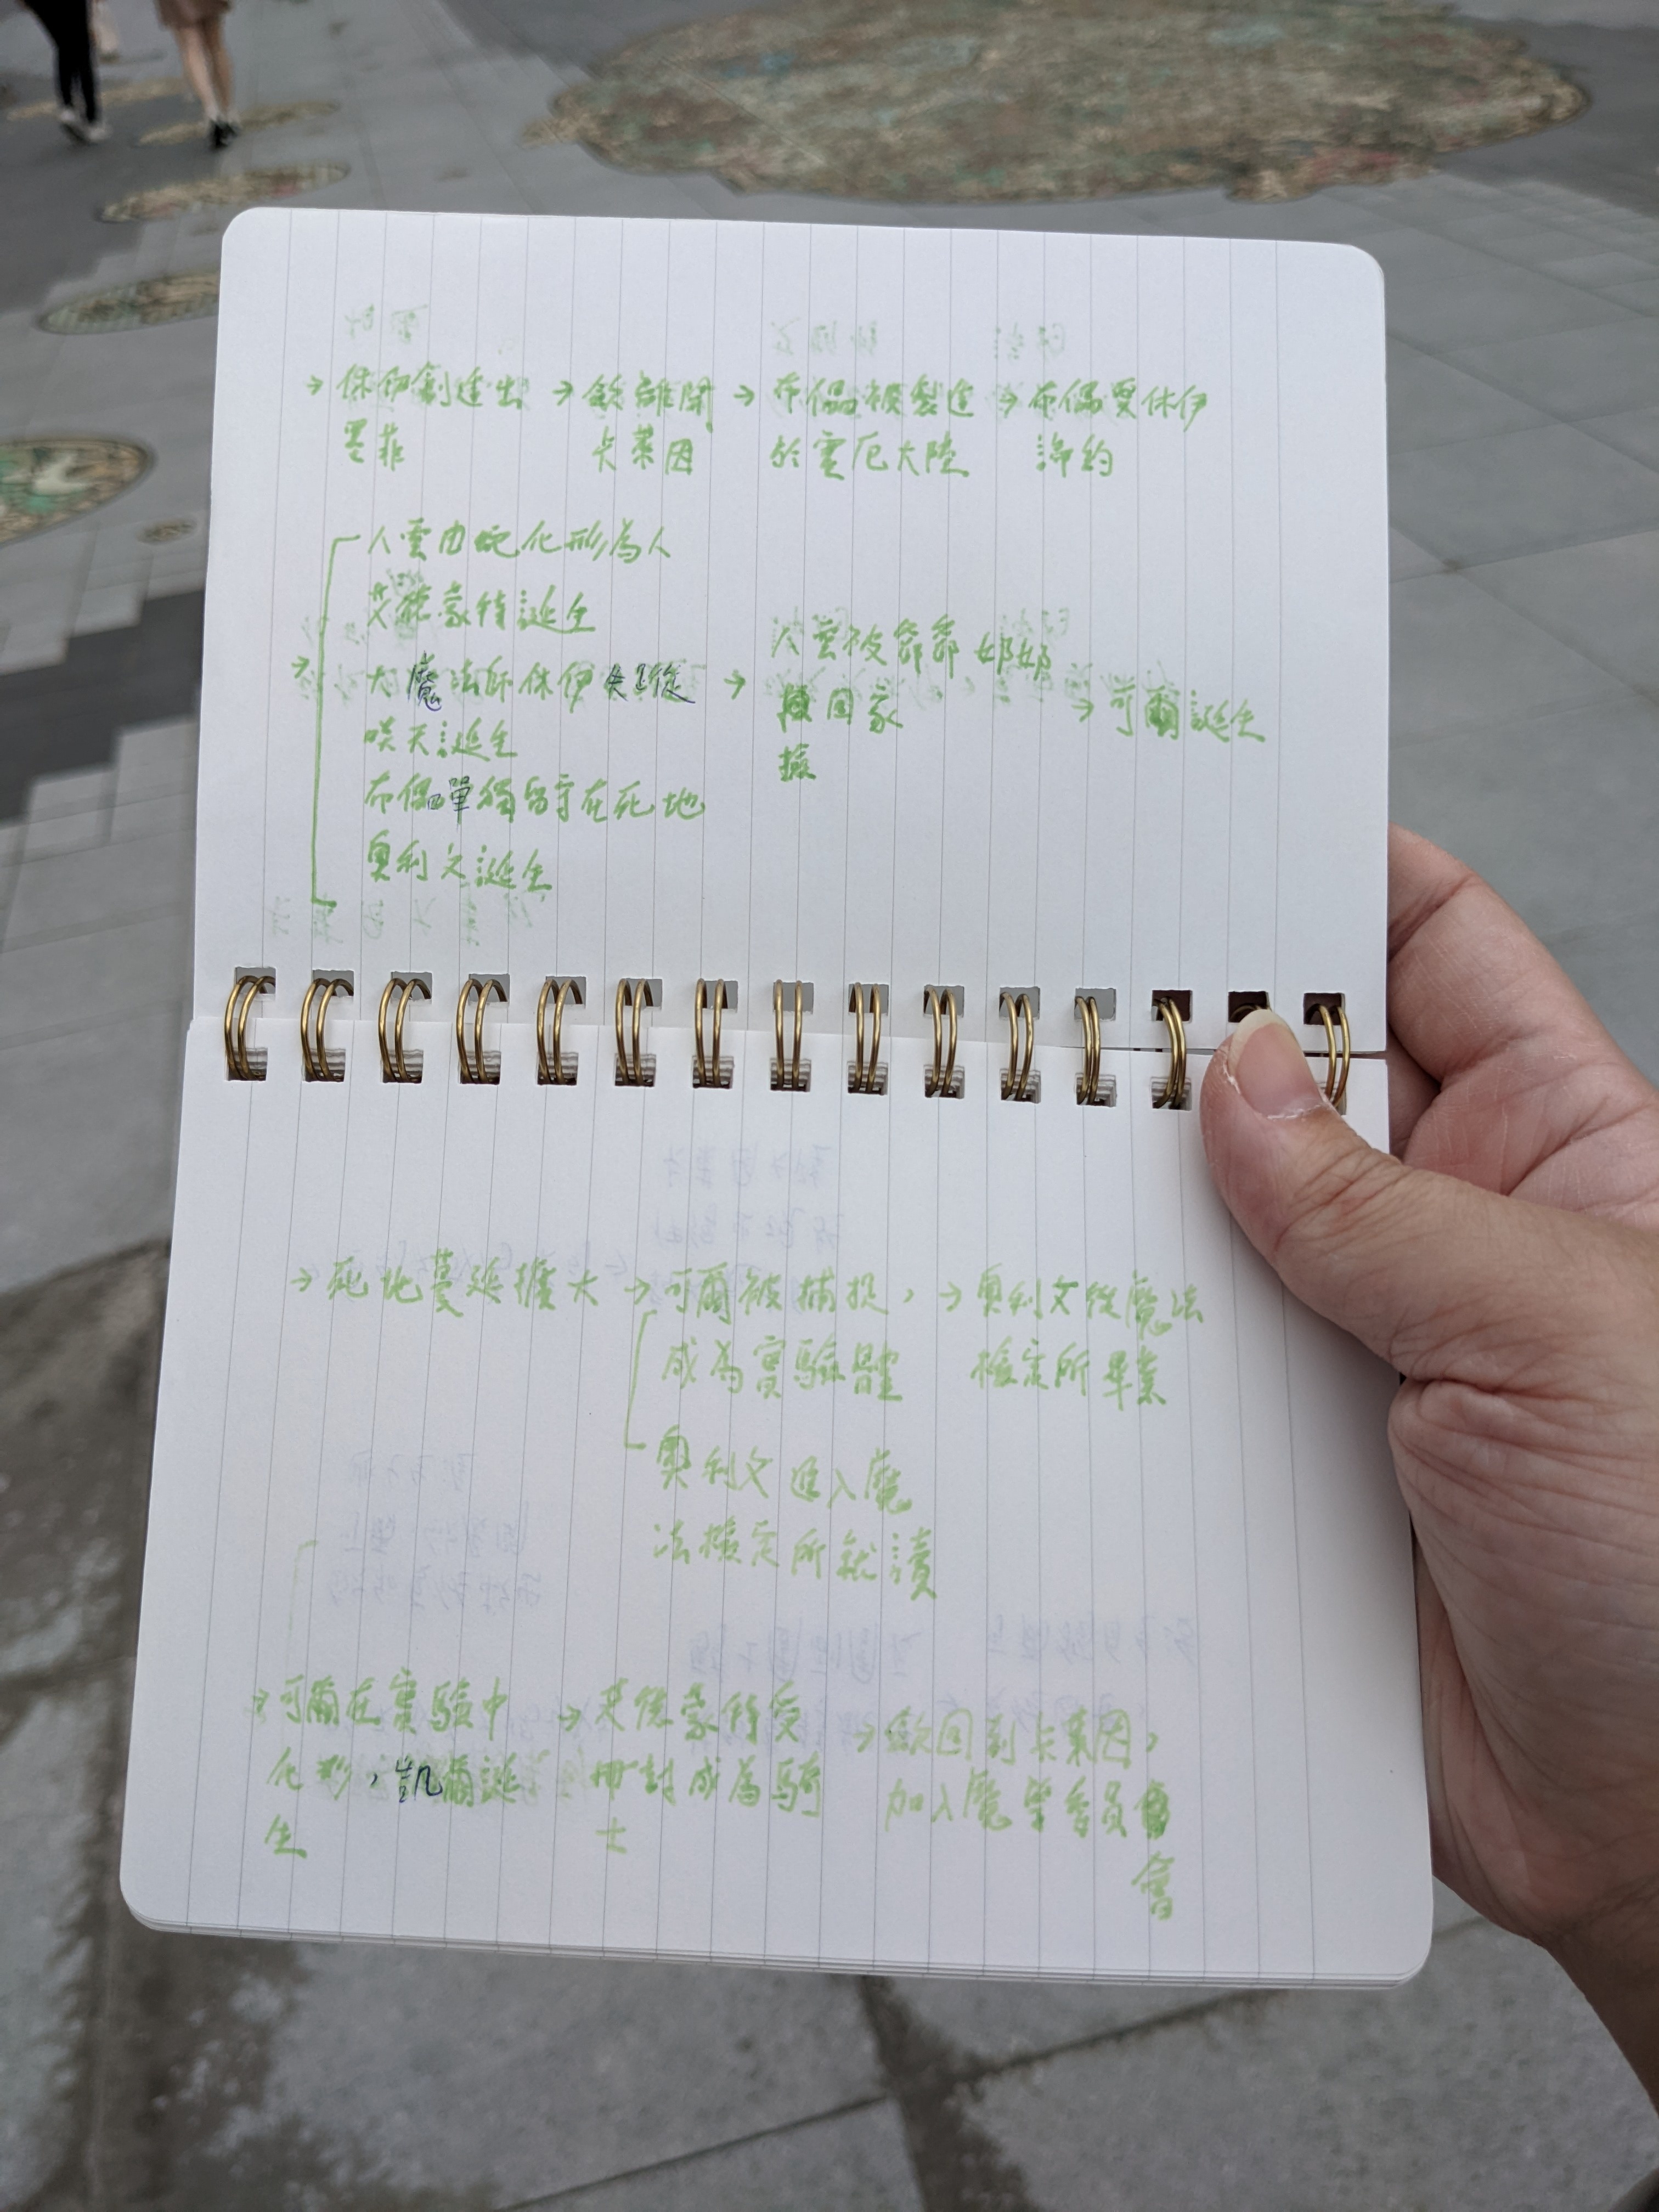 →休伊創造出 →歘離開 →布偶被製造 →布偶與休伊
墨菲 卡萊因 於雲厄大陸 締約
人雲由蛇化形為人
艾德蒙特誕生
→大魔法師休伊失蹤 →人雲被爺爺奶奶
笑天誕生 回家 →可爾誕生
撿
布偶單獨留守在死地
奧利文誕生
→死地蔓延擴大 →可爾被捕捉, →奧利文從魔法
成為實驗體 檢定所畢業
奧利文進入魔
法檢定所就讀
→可爾在實驗中 →艾德蒙特受 →歘回到卡萊因,
化形,凱爾誕 冊封成為騎 加入魔學委員
生 士 會